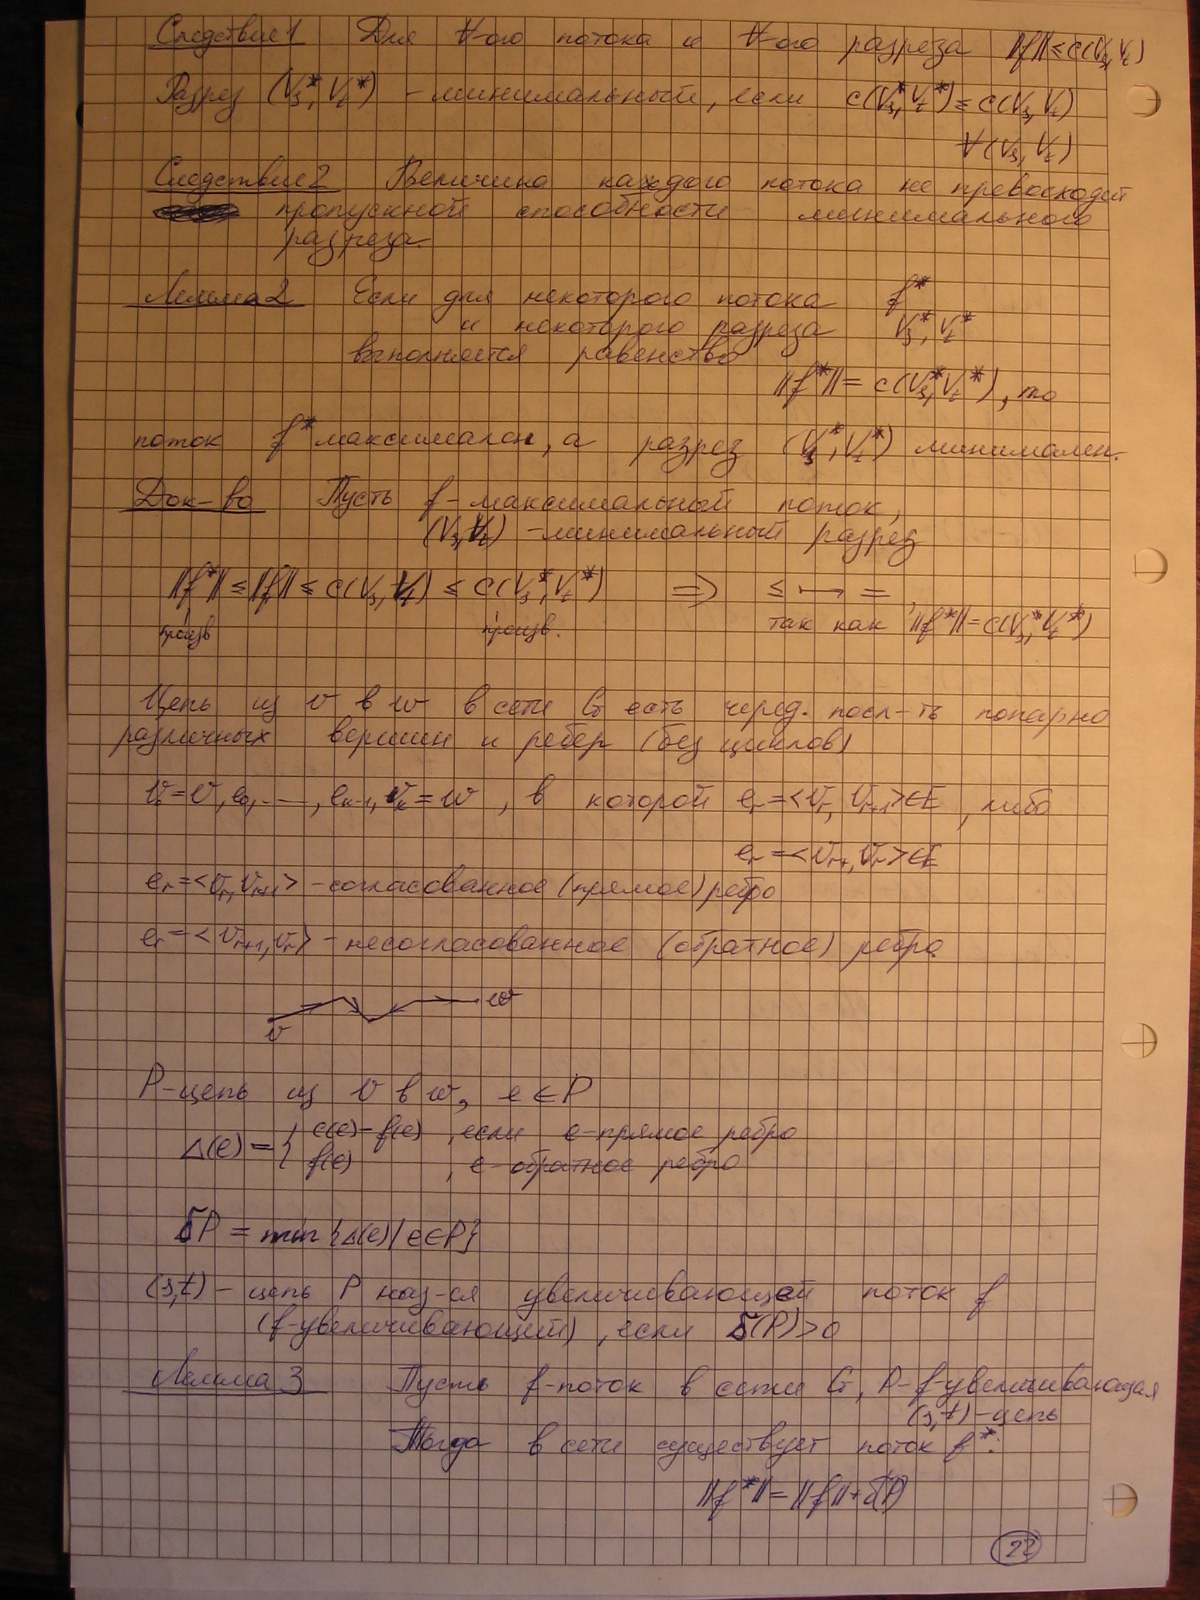 Следствие 1 Для ∀-ого потока и ∀-ого разреза ||f|| ≤ c(Vs, Vt)
Разрез (Vs*, Vt*) - минимальный, если c(Vs*, Vt*) ≤ c(Vs, Vt)
∀(Vs, Vt)
Следствие 2 Величина каждого потока не превосходит
пропускной способности минимального
разреза.
Лемма 2 Если для некоторого потока f*
и некоторого разреза Vs*, Vt*
выполняется равенство
||f*|| = c(Vs*, Vt*), то
поток f* максимален, а разрез (Vs*, Vt*) минимален.
Док-во Пусть f - максимальный поток,
(Vs, Vt) - минимальный разрез
||f*|| ≤ ||f|| ≤ c(Vs, Vt) ≤ c(Vs*, Vt*) ⇒ ≤ ↦ = ,
произв произв. так как ||f*|| = c(Vs*, Vt*)
Цепь из v в w в сети G есть черед. посл-ть попарно
различных вершин и ребер (без циклов)
v₀ = v, e₀, ..., eₖ₋₁, vₖ = w , в которой eᵣ = <vᵣ, vᵣ₊₁> ∈ E , либо
eᵣ = <vᵣ₊₁, vᵣ> ∈ E
eᵣ = <vᵣ, vᵣ₊₁> - согласованное (прямое) ребро
eᵣ = <vᵣ₊₁, vᵣ> - несогласованное (обратное) ребро
w
v
P - цепь из v в w, e ∈ P
Δ(e) = { c(e) - f(e) , если e - прямое ребро
f(e) , e - обратное ребро
δP = min {Δ(e) | e ∈ P}
(s, t) - цепь P наз-ся увеличивающей поток f
(f-увеличивающий), если δ(P) > 0
Лемма 3 Пусть f - поток в сети G, P - f-увеличивающая
(s, t) - цепь
Тогда в сети существует поток f*:
||f*|| = ||f|| + δ(P)
22